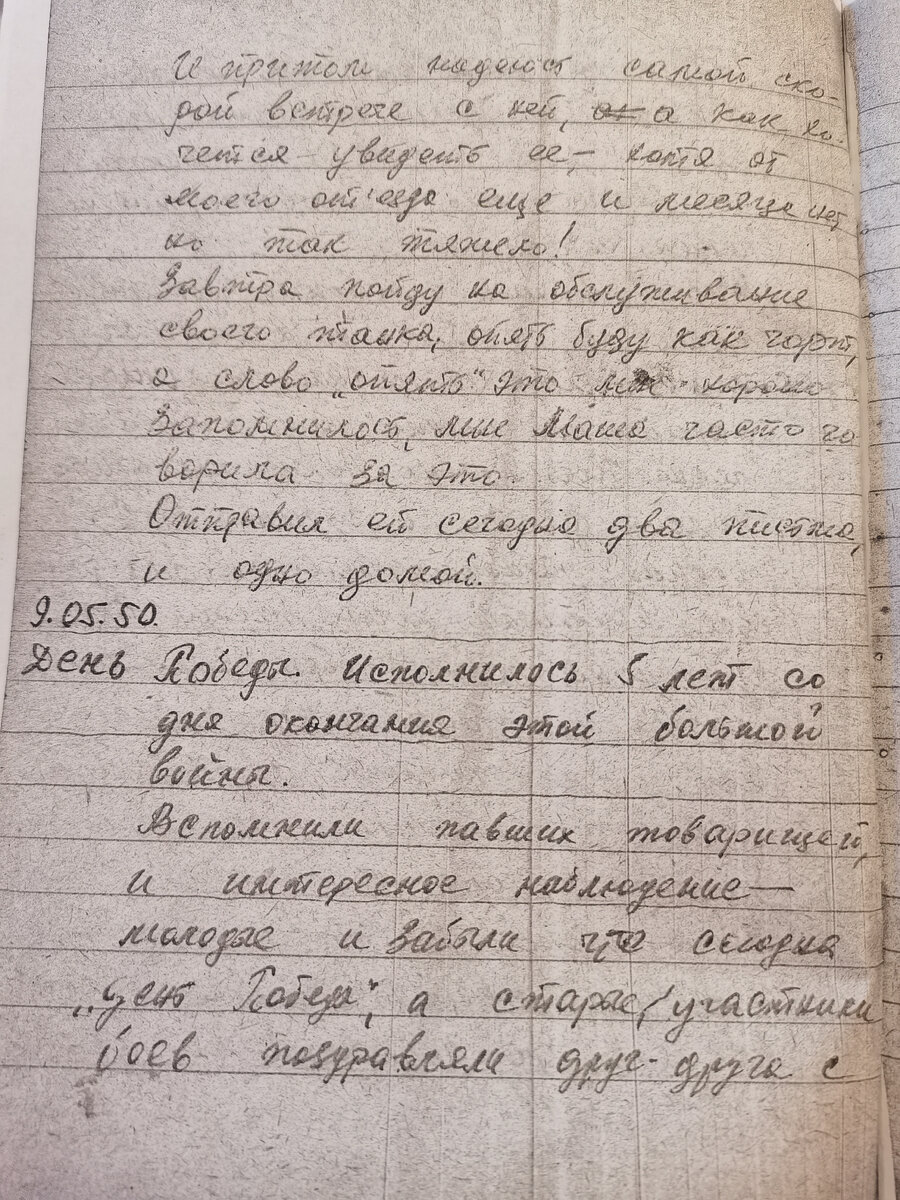 И притом надеюсь самой ско-
рой встрече с ней, а как хо-
чется увидеть ее-, хотя от
моего от'езда еще и месяца нет
но так тяжело!
Завтра пойду на обслуживание
своего танка, опять буду как чорт,
а слово „опять" это мне хорошо
запомнилось, мне Маша часто го
ворила за это
Отправил ей сегодня два письма,
и одно домой.
9.05.50.
День Победы. Исполнилось 5 лет со
дня окончания этой большой
войны.
Вспомнили павших товарищей,
и интересное наблюдение—
молодые и забыли что сегодня
„День Победы", а старые, участники
боев поздравляли друг-друга с